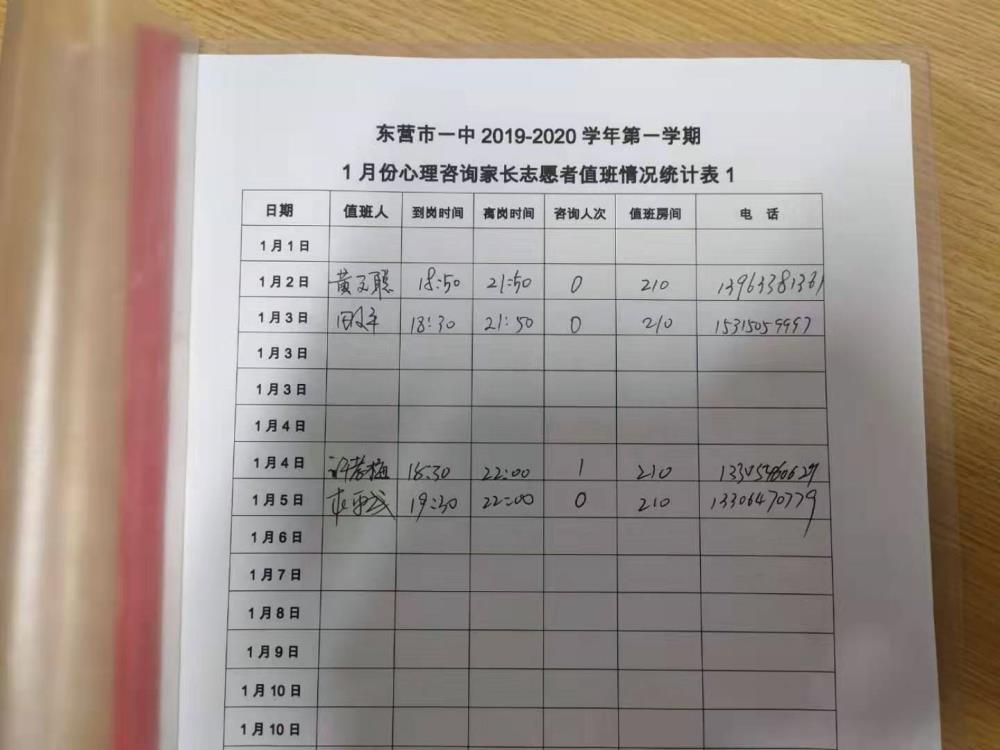 东营市一中 2019-2020 学年第一学期
1 月份心理咨询家长志愿者值班情况统计表 1
日期 值班人 到岗时间 离岗时间 咨询人次 值班房间 电 话
1 月 1 日
1 月 2 日 黄文聪 18:50 21:50 0 210 13963381361
1 月 3 日 18:30 21:50 0 210 15315059997
1 月 3 日
1 月 3 日
1 月 4 日
1 月 4 日 18:30 22:00 1 210
1 月 5 日 19:30 22:00 0 210 13306470779
1 月 6 日
1 月 7 日
1 月 8 日
1 月 9 日
1 月 10 日
1 月 10 日